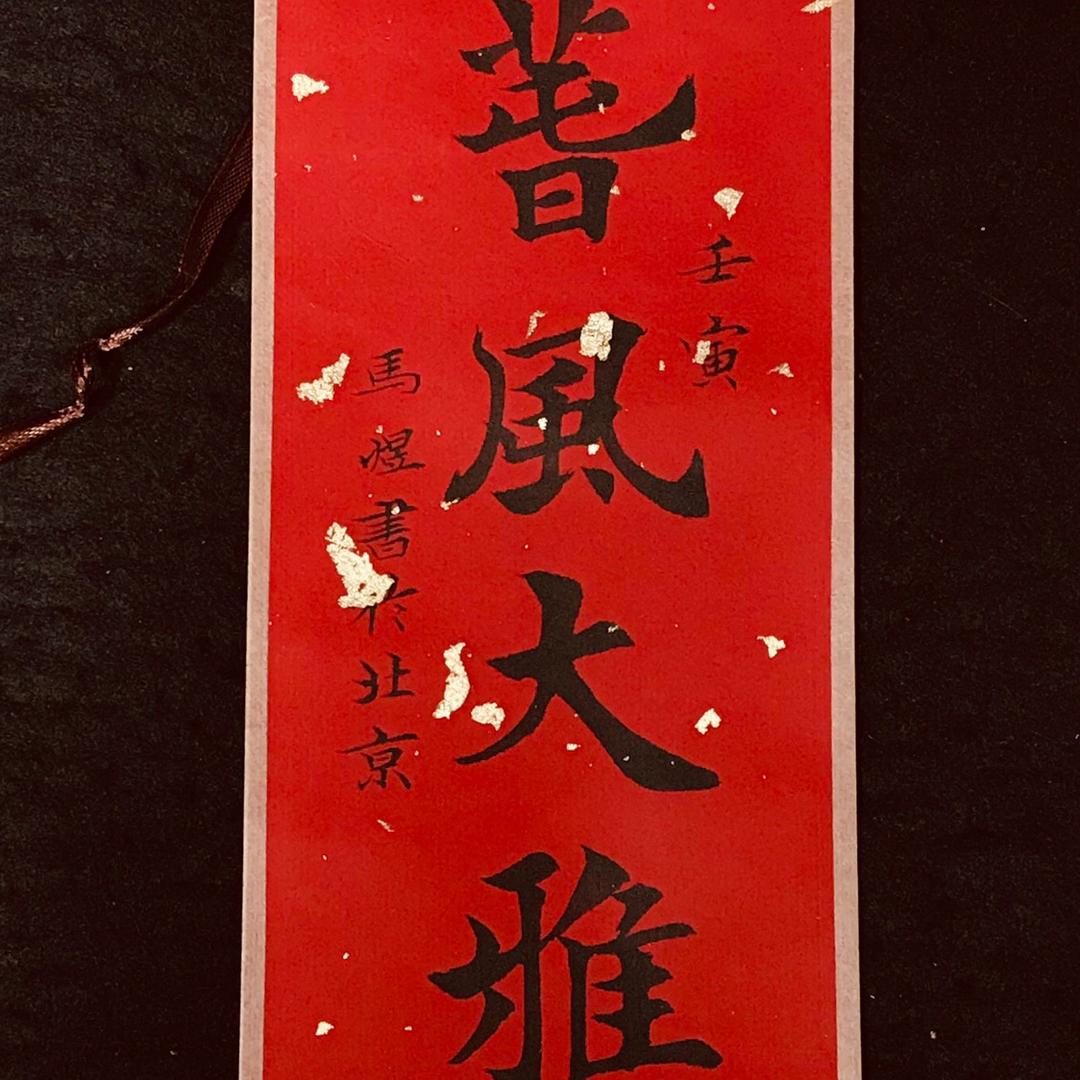 壬寅
萅風大雅
馬煜書於北京